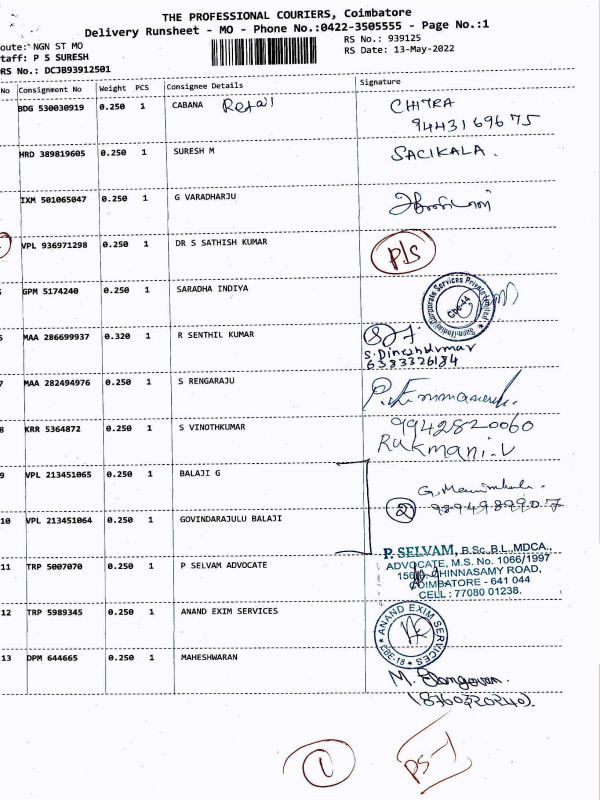 THE PROFESSIONAL COURIERS, Coimbatore
Delivery Runsheet - MO - Phone No.:0422-3505555 - Page No.:1
oute: NGN ST MO
RS No.: 939125
taff: P S SURESH
RS Date: 13-May-2022
RS No.: DCJB93912501
No Consignment No Weight PCS Consignee Details Signature
BDG 530030919 0.250 1 CABANA Retail CHITRA
9443169675
HRD 389819605 0.250 1 SURESH M SACIKALA.
IXM 501065047 0.250 1 G VARADHARJU
VPL 936971298 0.250 1 DR S SATHISH KUMAR P/S
GPM 5174240 0.250 1 SARADHA INDIYA
Corporate Services Private Limited
CBE-44
MAA 286699937 0.320 1 R SENTHIL KUMAR
S.Dineshkumar
6383326184
7 MAA 282494976 0.250 1 S RENGARAJU
8 KRR 5364872 0.250 1 S VINOTHKUMAR 9942820060
Rukmani.V
9 VPL 213451065 0.250 1 BALAJI G
10 VPL 213451064 0.250 1 GOVINDARAJULU BALAJI 2 9894989907
11 TRP 5007070 0.250 1 P SELVAM ADVOCATE
P. SELVAM, B.Sc.,B.L.,MDCA.,
ADVOCATE, M.S. No. 1066/1997
CHINNASAMY ROAD,
COIMBATORE - 641 044
CELL : 77080 01238.
12 TRP 5989345 0.250 1 ANAND EXIM SERVICES
ANAND EXIM SERVICES
CBE-18
13 DPM 644665 0.250 1 MAHESHWARAN
M. Elangovan.
(8760320240).
1
PS-1